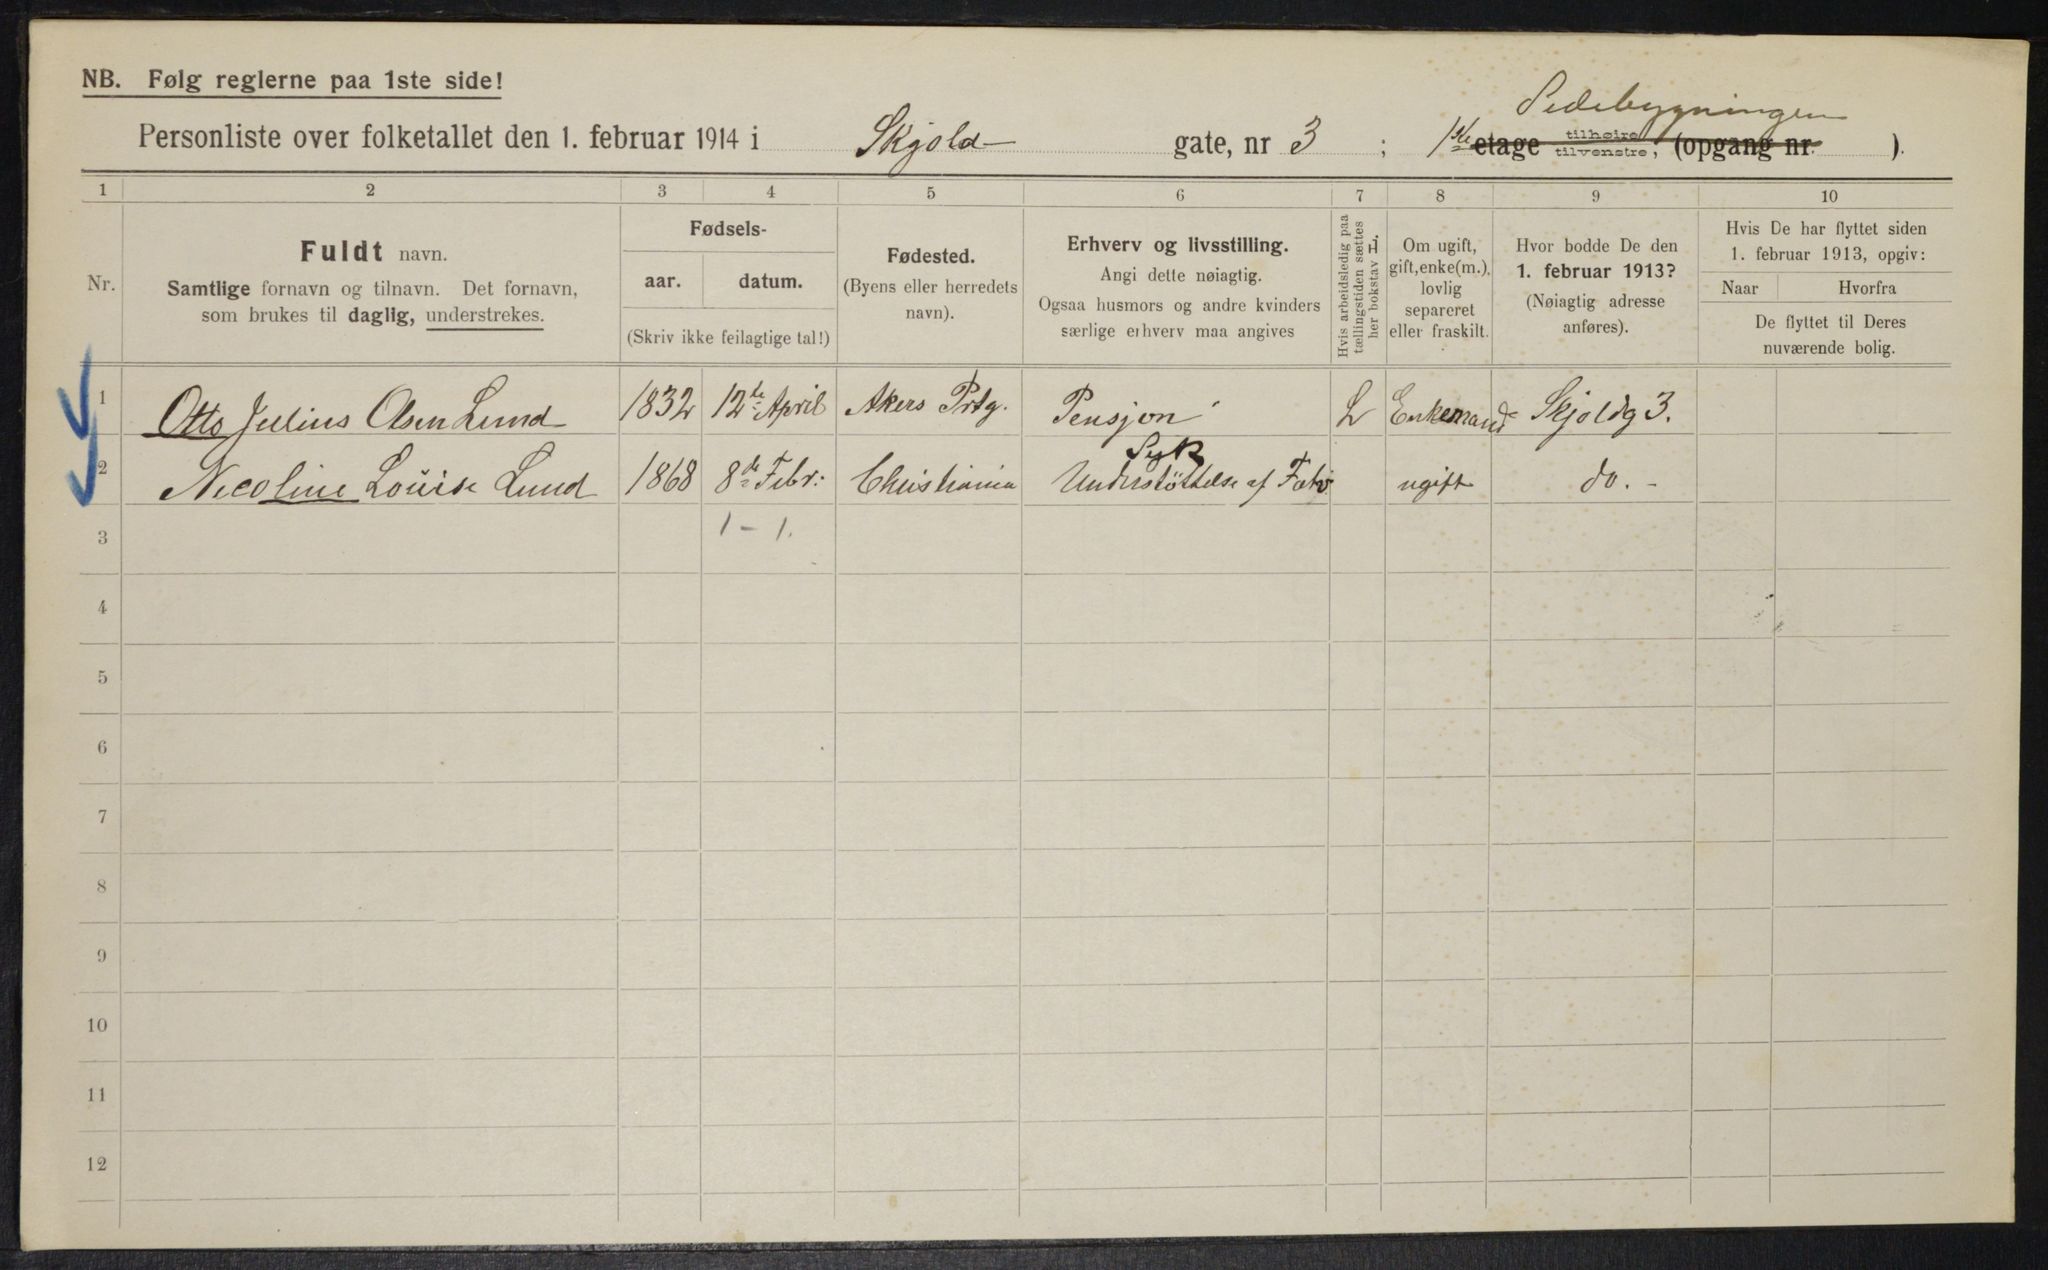 NB. Følg reglerne paa 1ste side!
Sidebygningen
Personliste over folketallet den 1. februar 1914 i Skjold- gate, nr 3 ; 1ste etage tilhøire tilvenstre, (opgang nr. ).
1 2 3 4 5 6 7 8 9 10
Nr.
Fuldt navn.
Samtlige fornavn og tilnavn. Det fornavn,
som brukes til daglig, understrekes.
Fødsels-
aar. datum.
(Skriv ikke feilagtige tal!)
Fødested.
(Byens eller herredets
navn).
Erhverv og livsstilling.
Angi dette nøiagtig.
Ogsaa husmors og andre kvinders
særlige erhverv maa angives
Hvis arbeidsledig paa
tællingstiden sættes
her bokstav L.
Om ugift,
gift, enke(m.),
lovlig
separeret
eller fraskilt.
Hvor bodde De den
1. februar 1913?
(Nøiagtig adresse
anføres).
Hvis De har flyttet siden
1. februar 1913, opgiv:
Naar Hvorfra
De flyttet til Deres
nuværende bolig.
1 Otto Julius Olsen Lund 1832 12te April Akers Prstg. Pensjon L Enkemand Skjoldg 3.
Syk
2 Nicoline Louise Lund 1868 8de Febr: Christiania Understøttelse af Fatv ugift do. -
3 1 - 1.
4
5
6
7
8
9
10
11
12